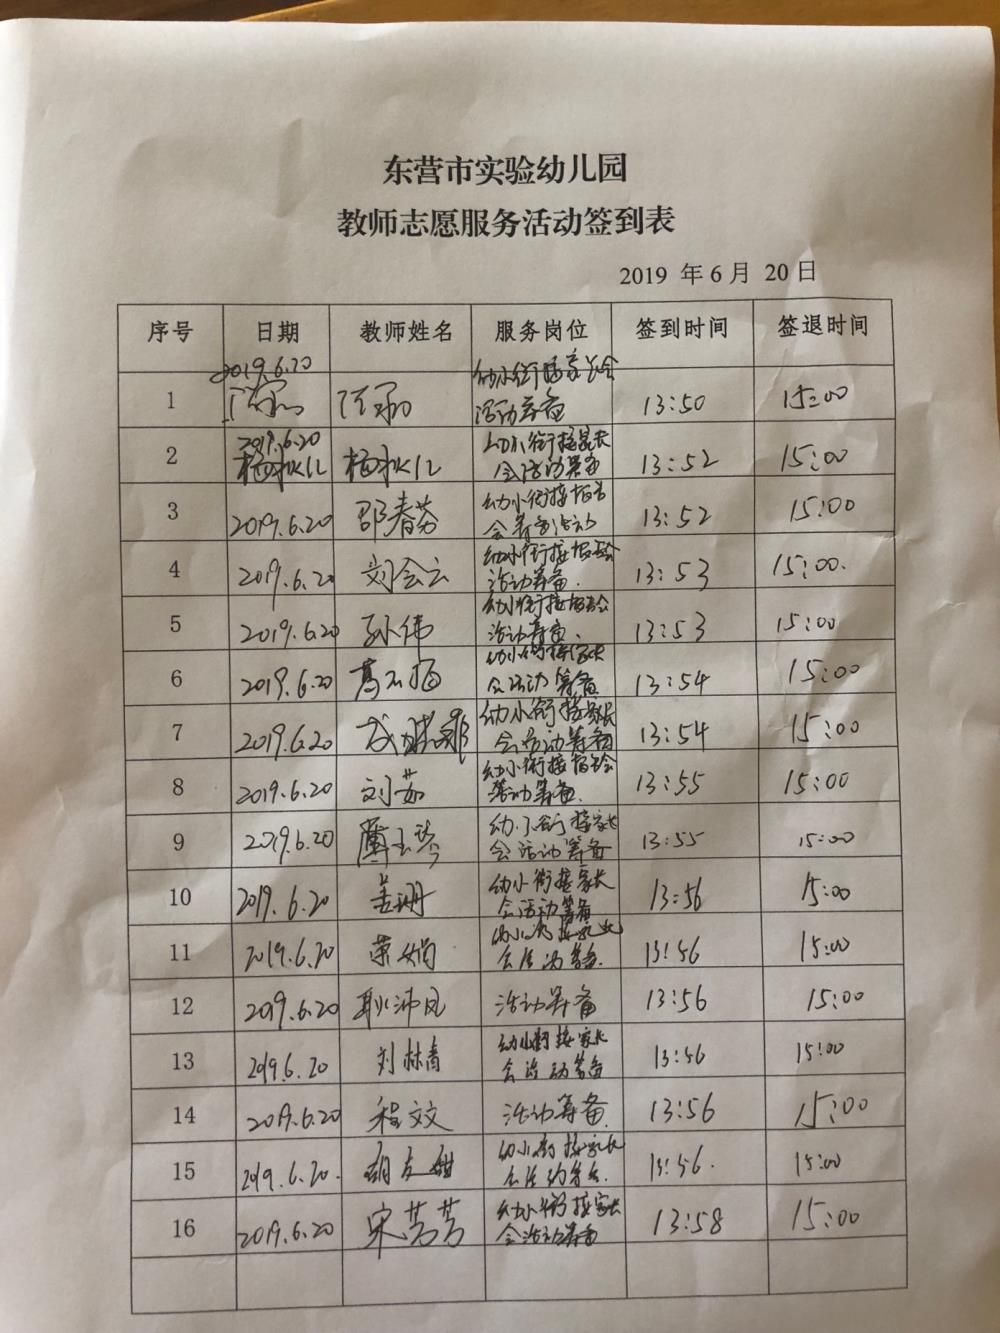 东营市实验幼儿园
教师志愿服务活动签到表
2019 年 6 月 20 日
序号 日期 教师姓名 服务岗位 签到时间 签退时间
2019.6.20 幼小衔接家长会
1 活动筹备 13:50 15:00
2019.6.20 幼小衔接家长
2 杨秋儿 杨秋儿 会活动筹备 13:52 15:00
幼小衔接
3 2019.6.20 邵春芬 会筹备活动 13:52 15:00
幼小衔接
4 2019.6.20 刘会云 活动筹备. 13:53 15:00.
幼小衔接
5 2019.6.20 孙伟 活动筹备. 13:53 15:00
幼小衔接家长
6 2019.6.20 会活动筹备 13:54 15:00
幼小衔接家长
7 2019.6.20 会活动筹备 13:54 15:00
幼小衔接
8 2019.6.20 刘茹 活动筹备. 13:55 15:00
幼小衔接家长
9 2019.6.20 会活动筹备 13:55 15:00
幼小衔接家长
10 2019.6.20 孟珊 会活动筹备 13:56 15:00
11 2019.6.20 13:56 15:00
12 2019.6.20 耿沛凤 活动筹备 13:56 15:00
幼小衔接家长
13 2019.6.20 刘林青 会活动筹备 13:56 15:00
14 2019.6.20 程文 活动筹备. 13:56 15:00
幼小衔接家长
15 2019.6.20. 13:56. 15:00
幼小衔接家长
16 2019.6.20 宋芳芳 会活动筹备 13:58 15:00